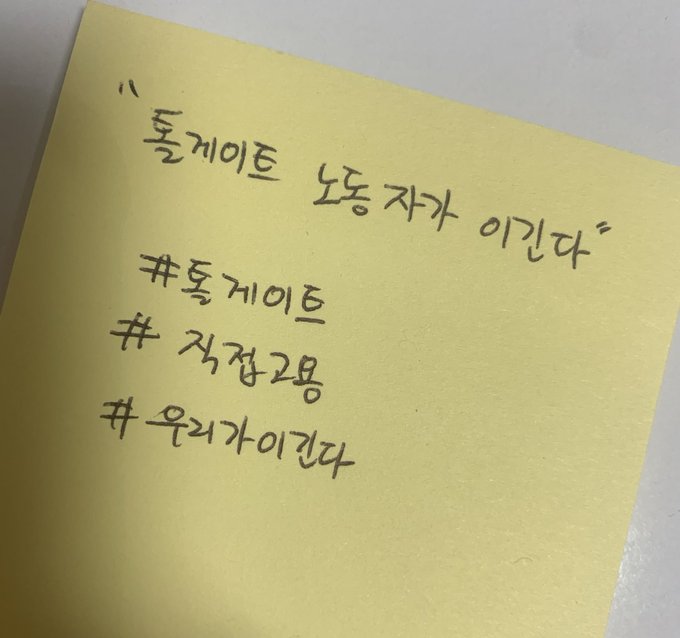 "톨게이트 노동자가 이긴다"
#톨게이트
# 직접고용
# 우리가이긴다